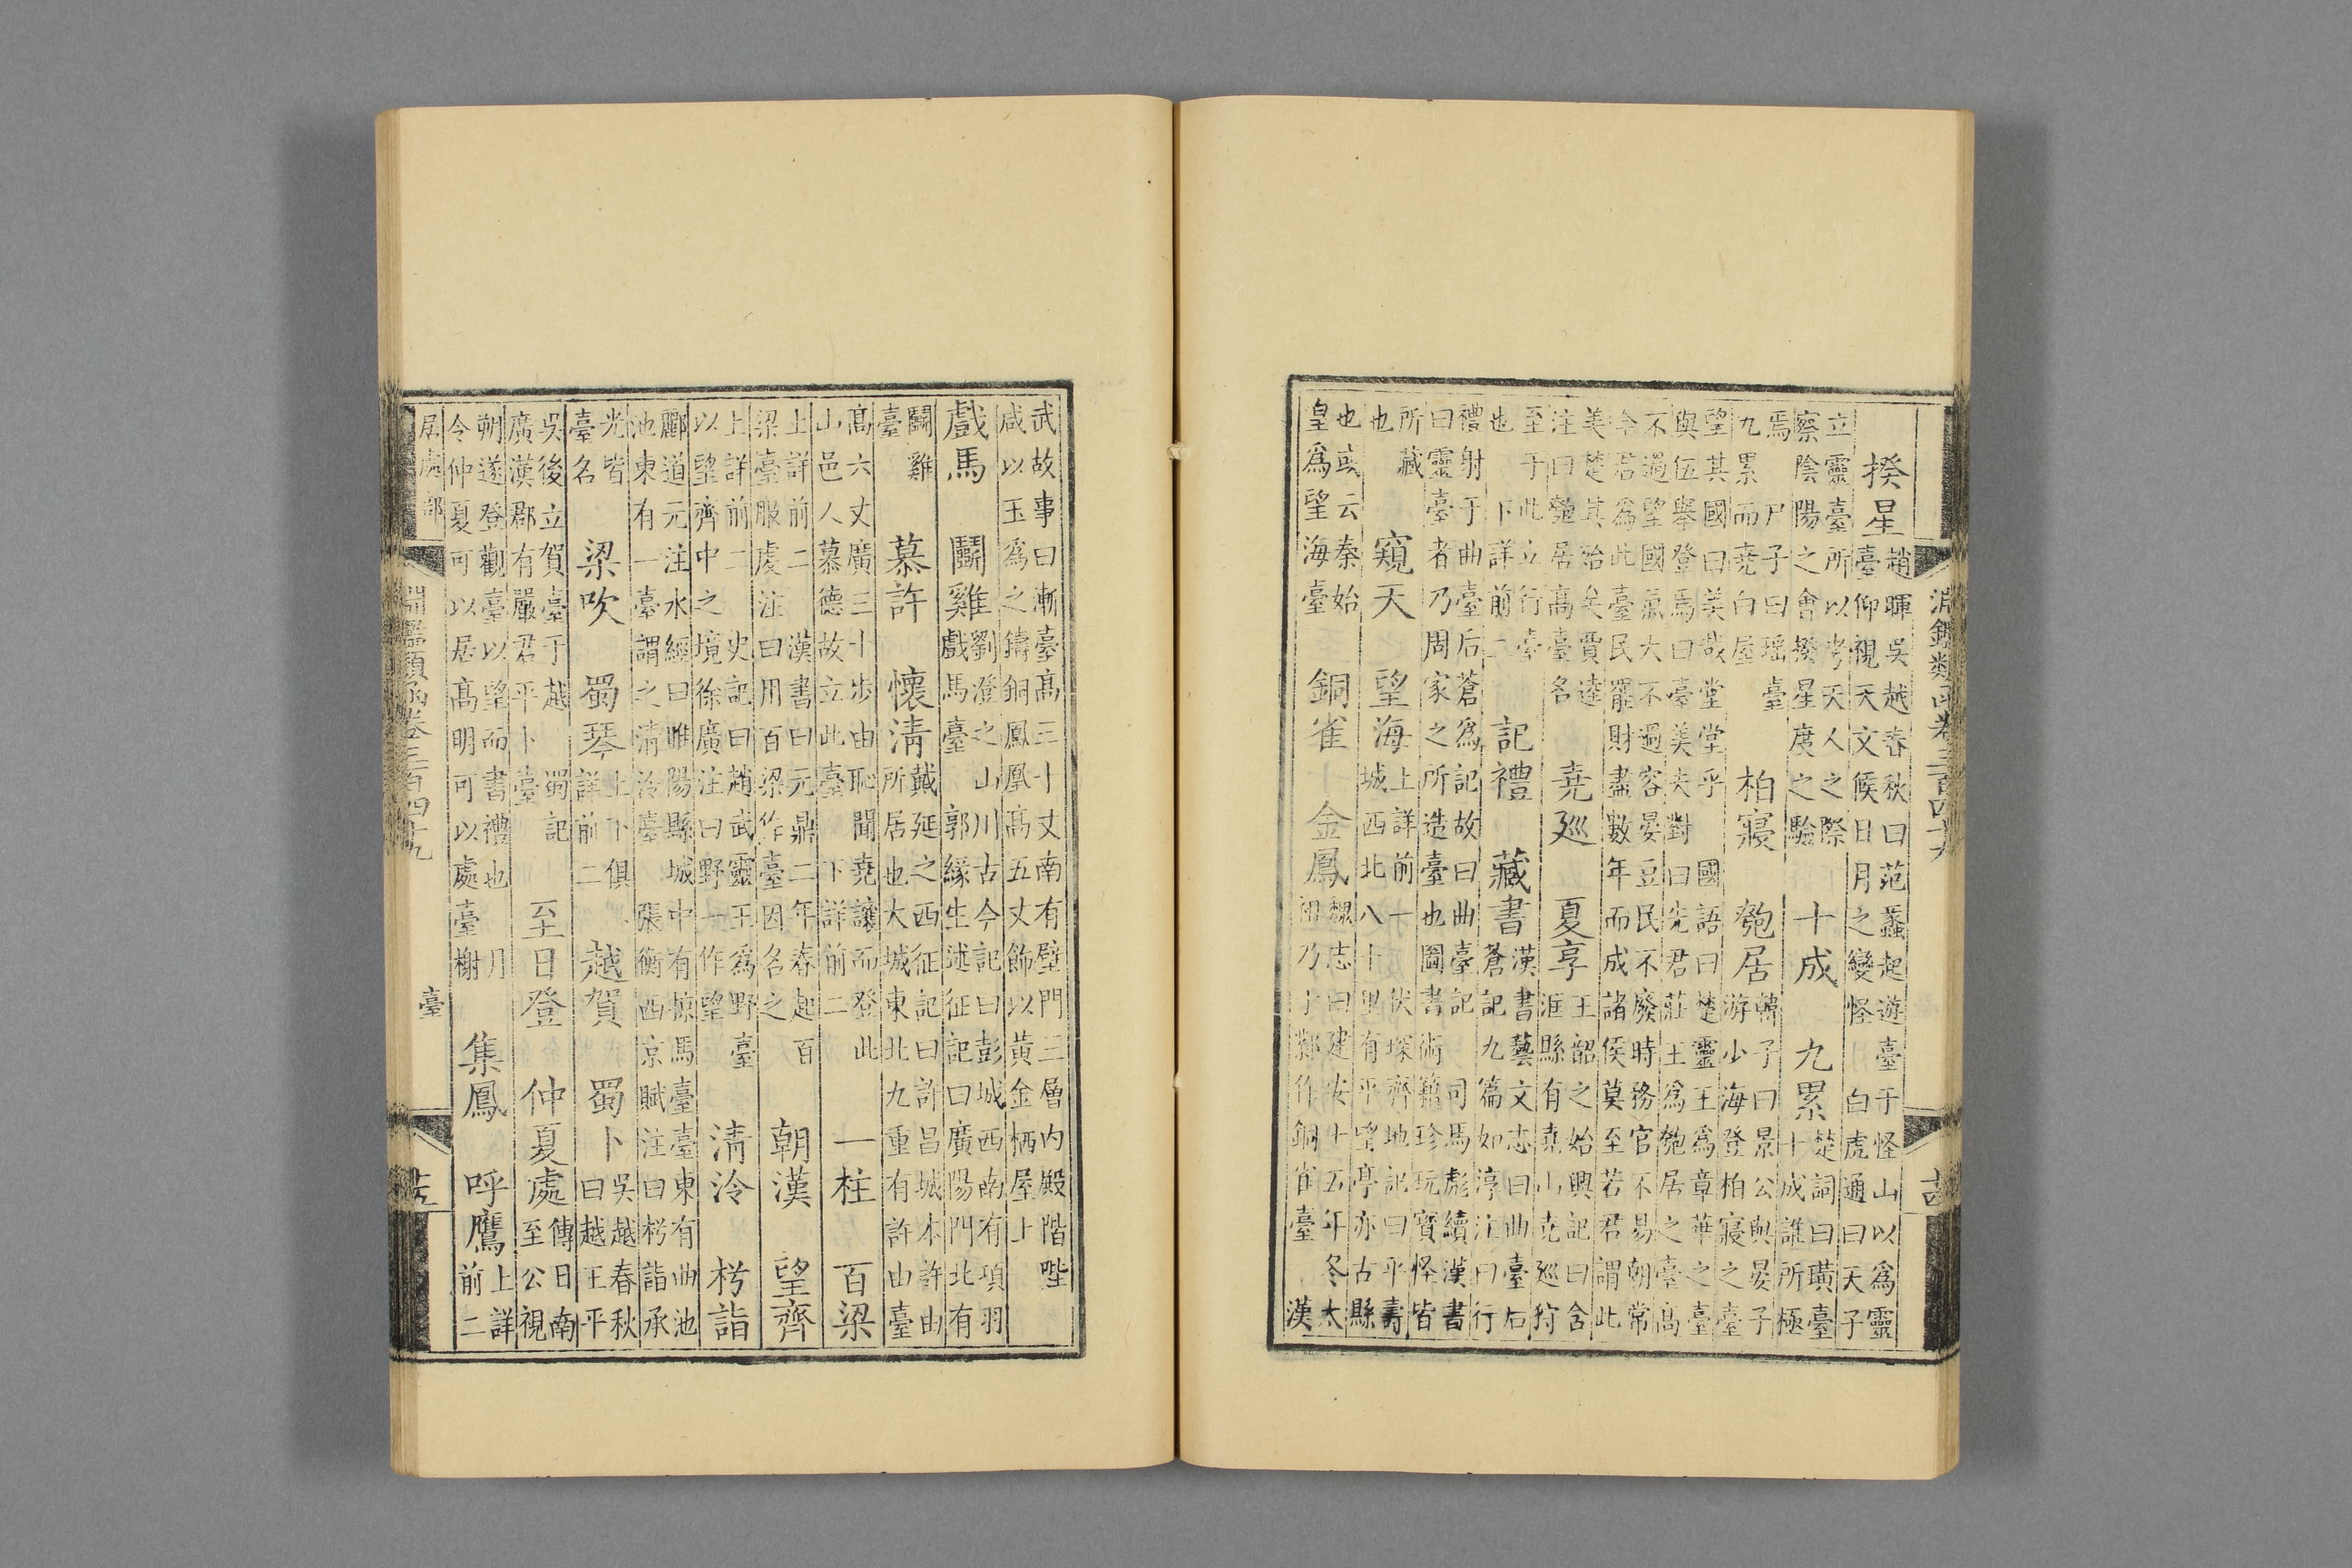 淵鑑類函卷三百四十九
揆星
趙曄吳越春秋曰范蠡起遊臺于怪山以為靈
臺仰視天文候日月之變怪 白虎通曰天子
立靈臺所以考天人之際
察陰陽之會揆星度之驗
十成 九累
楚詞曰璜臺
十成誰所極
焉 尸子曰瑤臺
九累而堯白屋
柏寢 匏居
韓子曰景公與晏子
游少海登柏寢之臺
望其國曰美哉堂堂乎 國語曰楚靈王為章華之臺
與伍舉登焉曰臺美夫對曰先君莊王為匏居之臺高
不過望國氛大不過容宴豆民不廢時務官不易朝常
今君為此臺民罷財盡數年而成諸侯莫至若君謂此
美楚其殆矣賈逵
注曰匏居高臺名
堯廵 夏享
王韶之始興記曰含
洭縣有堯山堯廵狩
至于此立行臺
也 下詳前二
記禮 藏書
漢書藝文志曰曲臺后
蒼記九篇如淳注曰行
禮射于曲臺后蒼為記故曰曲臺記 司馬彪續漢書
曰靈臺者乃周家之所造臺也圖書術籍珍玩寶怪皆
所藏
也
窺天 望海
上詳前一 伏琛齊地記曰平壽
城西北八十里有平望亭亦古縣
也或云秦始
皇為望海臺
銅雀 金鳳
魏志曰建安十五年冬太
祖乃于鄴作銅雀臺 漢
武故事曰漸臺高三十丈南有璧門三層內殿階陛
咸以玉為之鑄銅鳳凰高五丈飾以黃金栖屋上
戲馬 鬭雞
劉澄之山川古今記曰彭城西南有項羽
戲馬臺 郭緣生述征記曰廣陽門北有
鬭雞
臺
慕許 懷清
戴延之西征記曰許昌城本許由
所居也大城東北九重有許由臺
高六丈廣三十步由恥聞堯讓而登此
山邑人慕德故立此臺 下詳前二
一柱 百梁
上詳前二 漢書曰元鼎二年春起百
梁臺服虔注曰用百梁作臺因名之
朝漢 望齊
上詳前二 史記曰趙武靈王為野臺
以望齊中之境徐廣注曰野一作望
清泠 枍詣
酈道元注水經曰睢陽縣城中有掠馬臺臺東有曲池
池東有一臺謂之清泠臺 張衡西京賦注曰枍詣承
光皆
臺名
梁吹 蜀琴
上下俱
詳前二
越賀 蜀卜
吳越春秋
曰越王平
吳後立賀臺于越 蜀記
廣漢郡有嚴君平卜臺
至日登 仲夏處
傳日南
至公視
朔遂登觀臺以望而書禮也 月
令仲夏可以居高明可以處臺榭
集鳳 呼鷹
上詳
前二
居處部 臺
淵鑑類函卷三百四十九